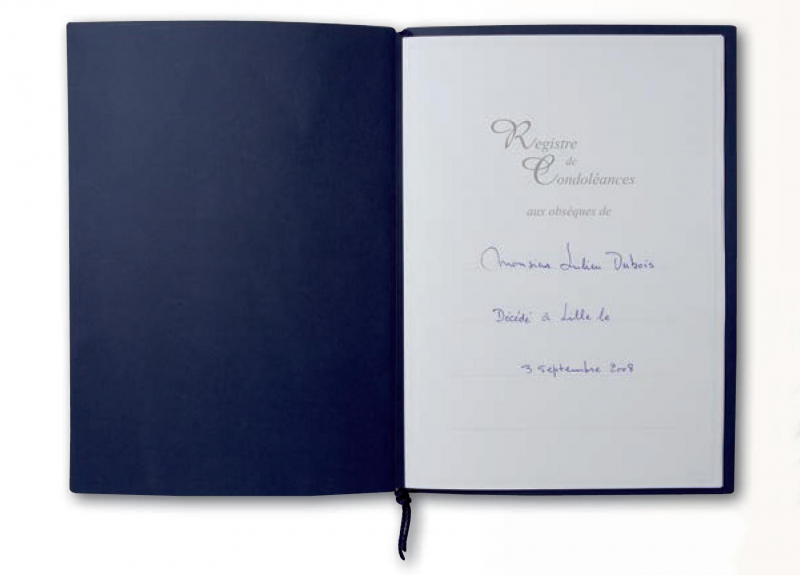 Registre
de
Condoléances
aux obsèques de
Monsieur Julien Dubois
Décédé à Lille le
3 Septembre 2008